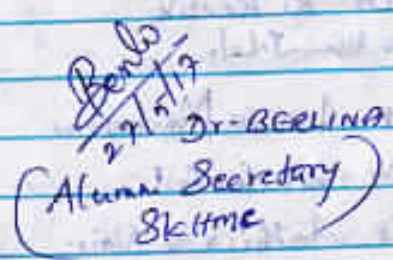 27/5/17
Dr-BERLINA
(Alumni Secretary
SKHMC)